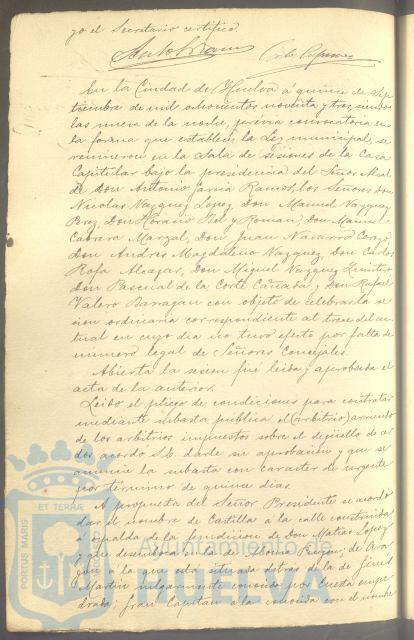 yo el Secretario certifico.
En la Ciudad de Huelva a quince de Sep-
tiembre de mil ochocientos noventa y tres, siendo
las nueve de la noche, previa convocatoria en
la forma que establece la Ley municipal, se
reunieron en la Sala de sesiones de la Casa
Capitular bajo la presidencia del Señor Alcal
de Don Antonio García Ramos, los Señores Don
Nicolas Vazquez Lopez, Don Manuel Vazquez
Perez, Don Horacio Bel y Roman, Don Manuel
Cabrera Marzal, Don Juan Navarro
Don Andres Magdaleno Vazquez, Don Carlos
Rofa Alcazar, Don Miguel Vazquez
Don Pascual de la Corte Cañada y Don Rafael
Valero Barragan con objeto de celebrar la se
sion ordinaria correspondiente al trece del ac
tual en cuyo dia no tuvo efecto por falta de
numero legal de Señores Concejales.
Abierta la sesion fué leida y aprobada el
acta de la anterior.
Leido el pliego de condiciones para contratar
mediante subasta pública el (arbitrio) arriendo
de los arbitrios impuestos sobre el degüello de cer
dos, acordó S.E. darle su aprobacion y que se
anuncie la subasta con caracter de urgente
por término de quince dias.
A propuesta del Señor Presidente se acordó
dar el nombre de Castilla a la calle construida
a espalda de la fundicion de Don Matias Lopez
y que desemboca a la de Alonso Pinzon; de Ara
gon a la que está situada detrás de la de Ginés
Martin vulgarmente conocida por cuesta empe
drada; fray Capitan a la conocida con el nombre
PORTUS MARIS
ET TERRÆ
Ayuntamiento de
HUELVA